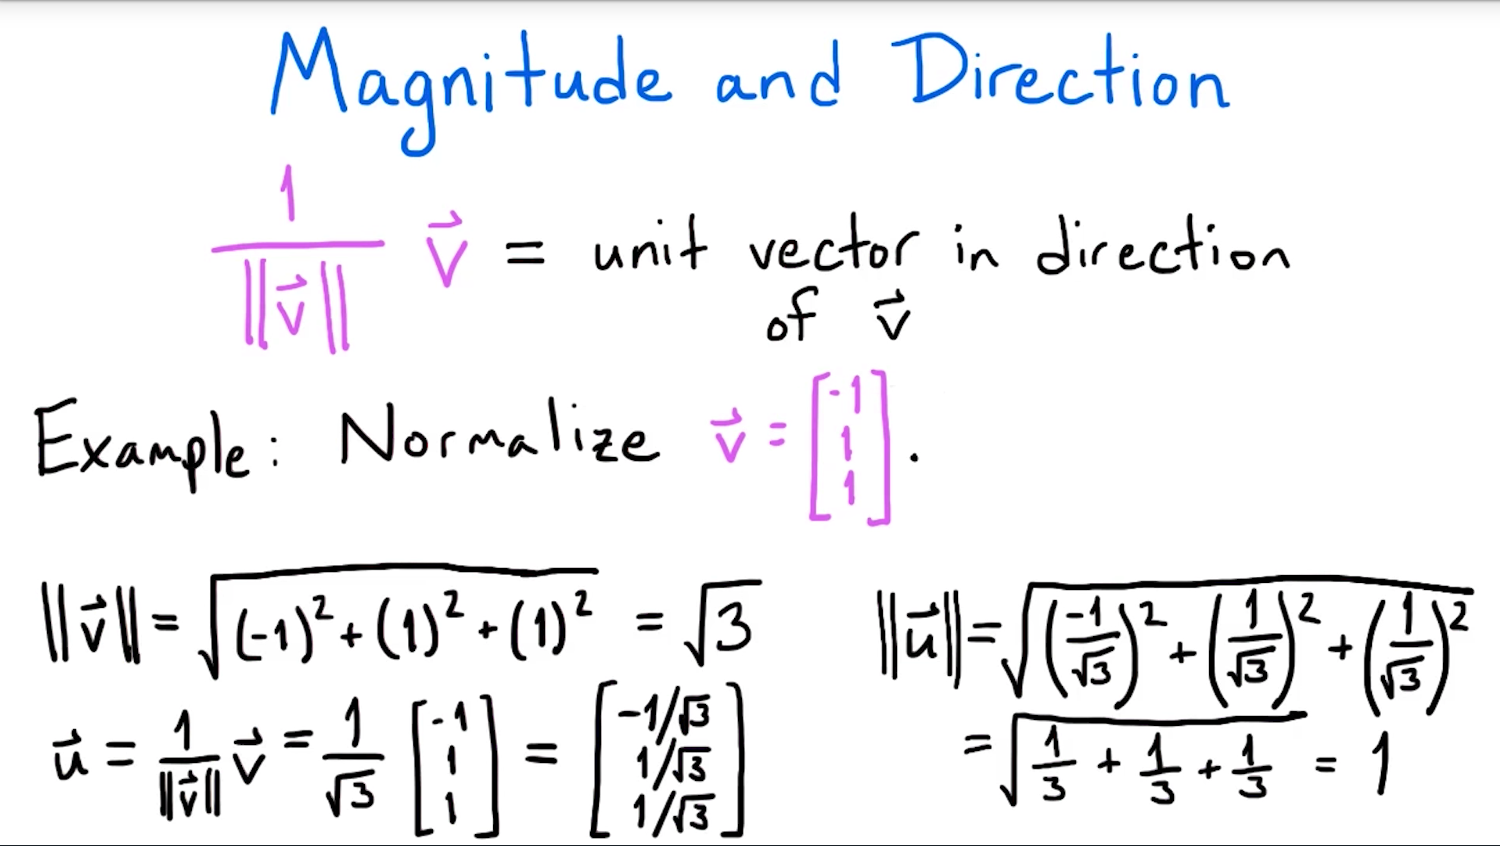 Magnitude and Direction
1/||v⃗|| v⃗ = unit vector in direction
of v⃗
Example: Normalize v⃗ = [-1 1 1].
||v⃗|| = √((-1)² + (1)² + (1)²) = √3
u⃗ = 1/||v⃗|| v⃗ = 1/√3 [-1 1 1] = [-1/√3 1/√3 1/√3]
||u⃗|| = √((-1/√3)² + (1/√3)² + (1/√3)²)
= √(1/3 + 1/3 + 1/3) = 1